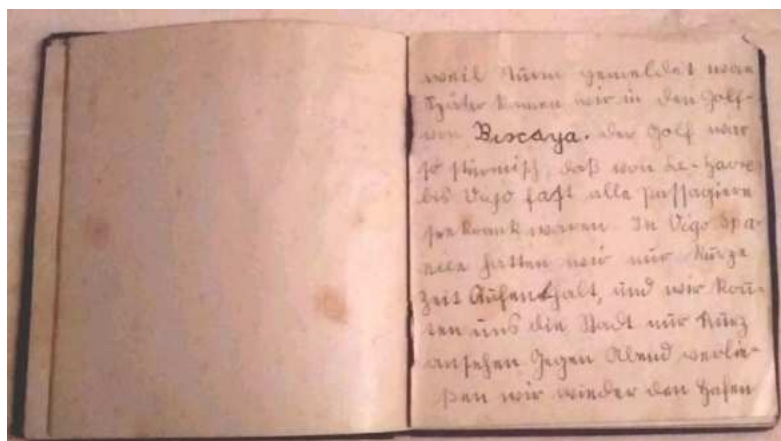 weil Sturm gemeldet war
Später kamen wir in den Golf-
von Biscaya. der Golf war
so stürmisch, daß von Le-Havre
bis Vigo fast alle Passagiere
seekrank waren. In Vigo Spa-
nien hatten wir nur kurze
Zeit Aufenthalt, und wir konn-
ten uns die Stadt nur kurz
ansehen Gegen Abend verlie-
ßen wir wieder den Hafen